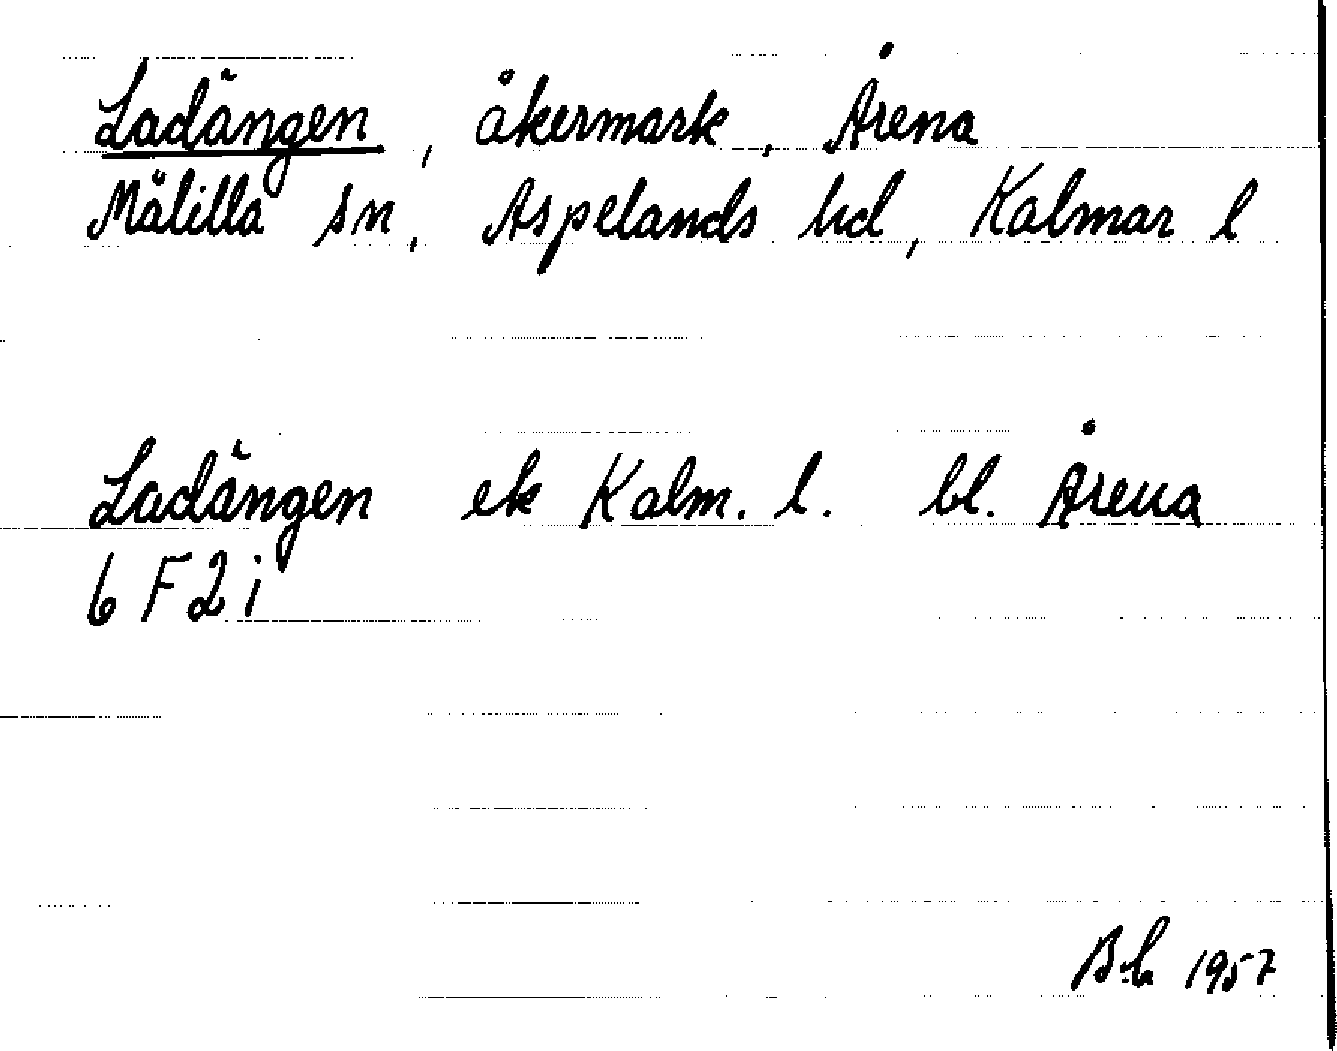 Ladängen, åkermark, Årena
Målilla sn, Aspelands hd, Kalmar l
Ladängen ek Kalm. l. bl. Årena
6 F 2 i
1957